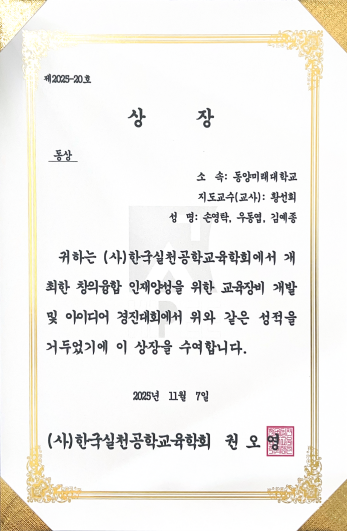 제2025-20호
상 장
동상
소 속: 동양미래대학교
지도교수(교사): 황선희
성 명: 손영탁, 우동엽, 김예종
귀하는 (사)한국실천공학교육학회에서 개
최한 창의융합 인재양성을 위한 교육장비 개발
및 아이디어 경진대회에서 위와 같은 성적을
거두었기에 이 상장을 수여합니다.
2025년 11월 7일
(사)한국실천공학교육학회 권 오 영